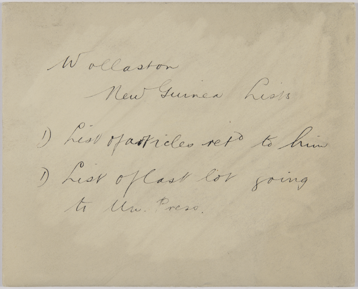 Wollaston
New Guinea Lists
1) List of articles retd to him
1) List of last lot going
to Un. Press.